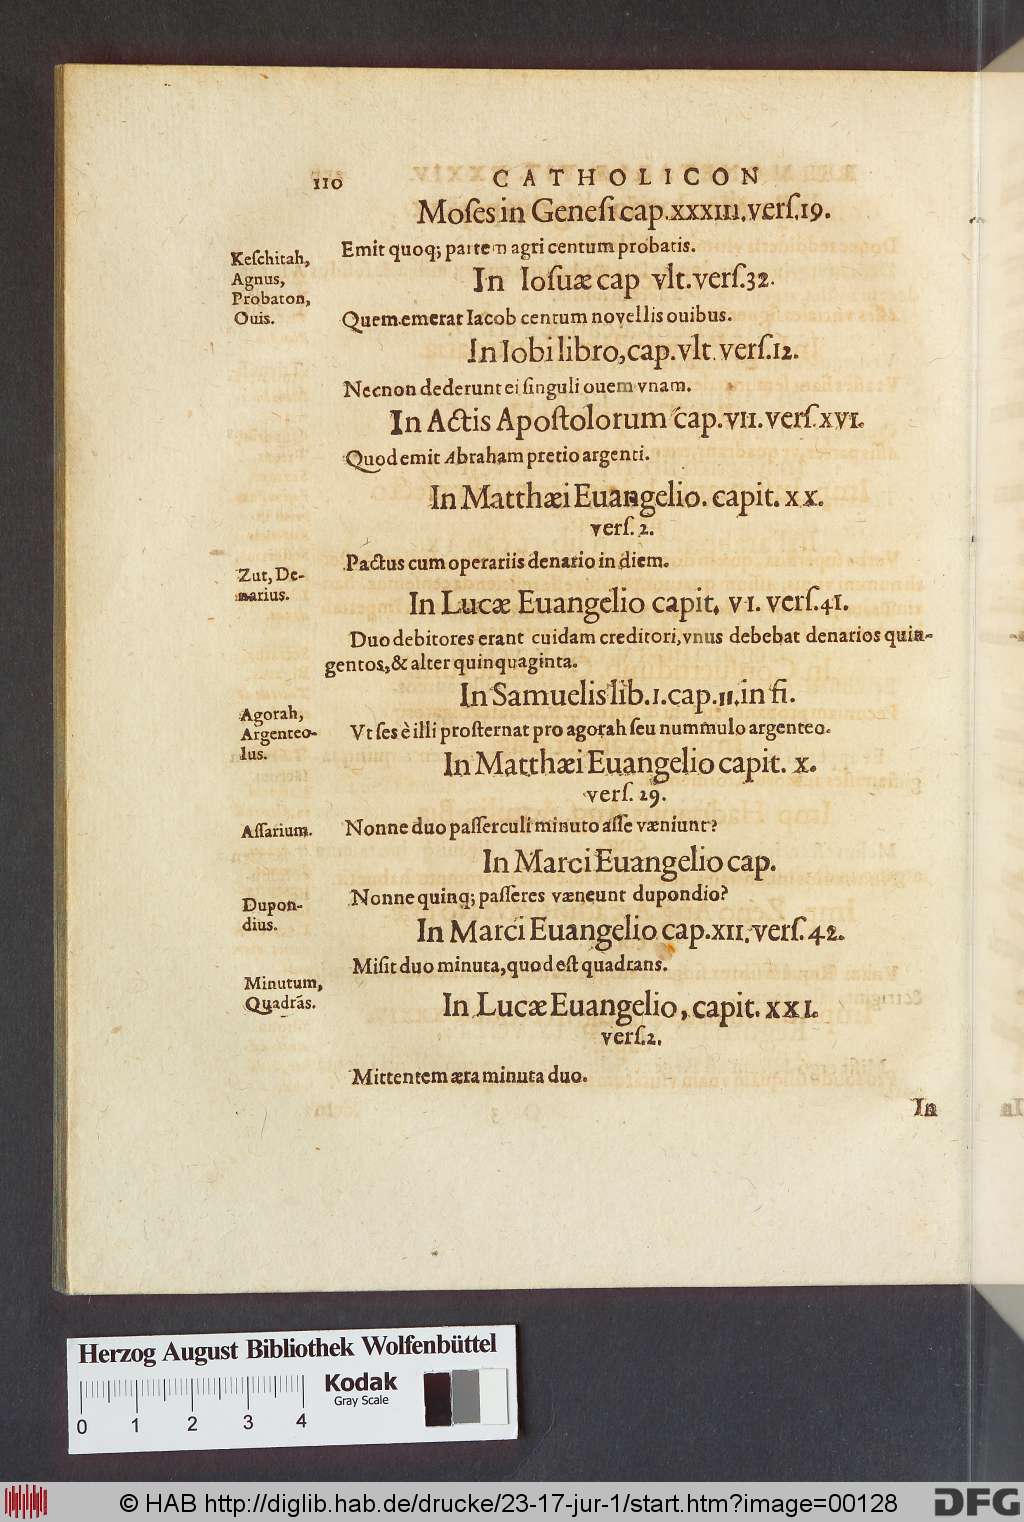 110 CATHOLICON
Moſes in Geneſi cap.xxxiii.verſ.19.
Emit quoq; partem agri centum probatis.
Keſchitah,
Agnus,
Probaton,
Ouis.
In Ioſuæ cap vlt.verſ.32.
Quem emerat Iacob centum novellis ouibus.
In Iobi libro, cap.vlt.verſ.12.
Necnon dederunt ei ſinguli ouem vnam.
In Actis Apoſtolorum cap.VII.verſ.XVI.
Quod emit Abraham pretio argenti.
In Matthæi Euangelio. capit. XX.
verſ. 2.
Pactus cum operariis denario in diem.
Zut, De-
narius.
In Lucæ Euangelio capit. VI. verſ.41.
Duo debitores erant cuidam creditori, vnus debebat denarios quin-
gentos, & alter quinquaginta.
In Samuelis lib.1.cap.11.in fi.
Agorah,
Argenteo-
lus.
Vt ſes è illi proſternat pro agorah ſeu nummulo argenteo.
In Matthæi Euangelio capit. X.
verſ. 29.
Aſſarium.
Nonne duo paſſerculi minuto aſſe væniunt?
In Marci Euangelio cap.
Nonne quinq; paſſeres væneunt dupondio?
Dupon-
dius.
In Marci Euangelio cap.XII.verſ.42.
Miſit duo minuta, quod eſt quadrans.
Minutum,
Quadrãs.
In Lucæ Euangelio, capit. XXI.
verſ.2.
Mittentem æra minuta duo.
In
Herzog August Bibliothek Wolfenbüttel
Kodak
Gray Scale
0 1 2 3 4
© HAB http://diglib.hab.de/drucke/23-17-jur-1/start.htm?image=00128
DFG